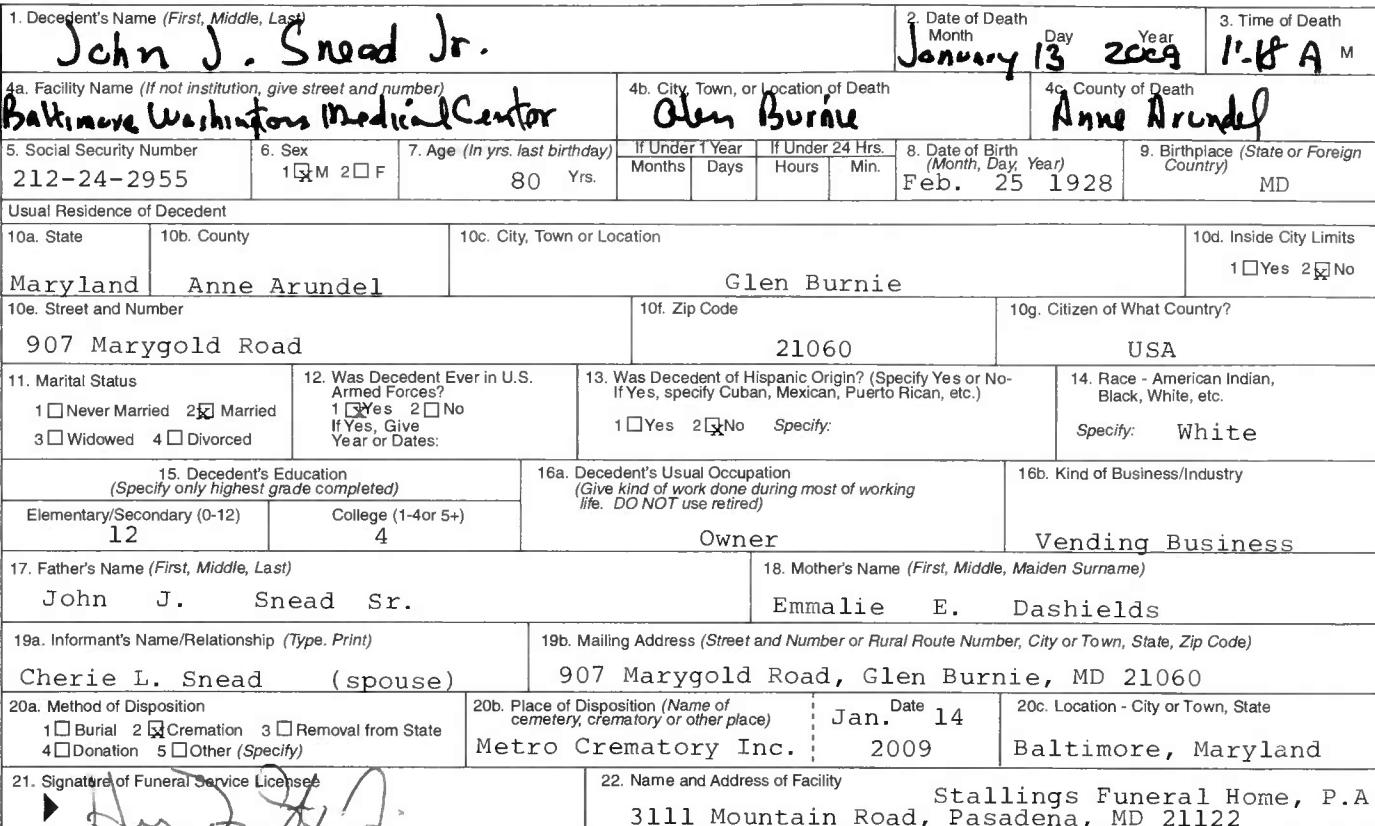 1. Decedent's Name (First, Middle, Last)
John J. Snead Jr.
2. Date of Death
Month Day Year
January 13 2009
3. Time of Death
1:18 A M
4a. Facility Name (If not institution, give street and number)
Baltimore Washington Medical Center
4b. City, Town, or Location of Death
Glen Burnie
4c. County of Death
Anne Arundel
5. Social Security Number
212-24-2955
6. Sex
1 ☒ M 2 ☐ F
7. Age (In yrs. last birthday)
80 Yrs.
If Under 1 Year
Months Days
If Under 24 Hrs.
Hours Min.
8. Date of Birth
(Month, Day, Year)
Feb. 25 1928
9. Birthplace (State or Foreign
Country)
MD
Usual Residence of Decedent
10a. State
Maryland
10b. County
Anne Arundel
10c. City, Town or Location
Glen Burnie
10d. Inside City Limits
1 ☐ Yes 2 ☒ No
10e. Street and Number
907 Marygold Road
10f. Zip Code
21060
10g. Citizen of What Country?
USA
11. Marital Status
1 ☐ Never Married 2 ☒ Married
3 ☐ Widowed 4 ☐ Divorced
12. Was Decedent Ever in U.S.
Armed Forces?
1 ☒ Yes 2 ☐ No
If Yes, Give
Year or Dates:
13. Was Decedent of Hispanic Origin? (Specify Yes or No-
If Yes, specify Cuban, Mexican, Puerto Rican, etc.)
1 ☐ Yes 2 ☒ No Specify:
14. Race - American Indian,
Black, White, etc.
Specify: White
15. Decedent's Education
(Specify only highest grade completed)
Elementary/Secondary (0-12)
12
College (1-4or 5+)
4
16a. Decedent's Usual Occupation
(Give kind of work done during most of working
life. DO NOT use retired)
Owner
16b. Kind of Business/Industry
Vending Business
17. Father's Name (First, Middle, Last)
John J. Snead Sr.
18. Mother's Name (First, Middle, Maiden Surname)
Emmalie E. Dashields
19a. Informant's Name/Relationship (Type. Print)
Cherie L. Snead (spouse)
19b. Mailing Address (Street and Number or Rural Route Number, City or Town, State, Zip Code)
907 Marygold Road, Glen Burnie, MD 21060
20a. Method of Disposition
1 ☐ Burial 2 ☒ Cremation 3 ☐ Removal from State
4 ☐ Donation 5 ☐ Other (Specify)
20b. Place of Disposition (Name of
cemetery, crematory or other place)
Metro Crematory Inc.
Date
Jan. 14
2009
20c. Location - City or Town, State
Baltimore, Maryland
21. Signature of Funeral Service Licensee
22. Name and Address of Facility
Stallings Funeral Home, P.A
3111 Mountain Road, Pasadena, MD 21122